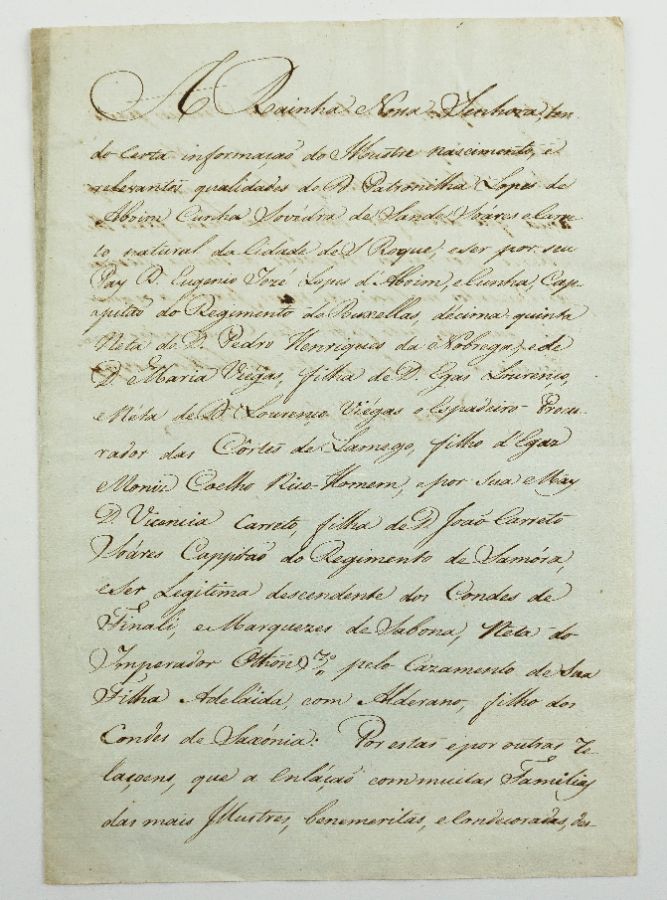 A Rainha Nossa Senhora, ten-
do certa informação do Illustre nascimento, e
relevantes qualidades de D. Patronilha Lopes de
Abrim Cunha Sovédra de Sande Soáres e Carre-
to natural da Cidade de S. Roque, e ser por seu
Pay D. Eugenio Jozé Lopes d'Abrim, e Cunha, Cap-
pitaõ do Regimento de Bruxellas, decima quinta
Neta de D. Pedro Henriques da Nobrega, e de
D. Maria Viégas, filha de D. Egas Lourenço,
e Néta de D. Lourenço Viégas o Espadeiro Procu-
rador das Côrtes de Lamego, filho d'Egaz
Moniz Coelho Rico-Homem, e por sua May
D. Vicencia Carreto, filha de D. João Carreto
Soáres Cappitaõ do Regimento de Samóra,
e Ser Legitima descendente dos Condes de
Finali, e Marquezes de Sabona, Neta do
Imperador Othon 3º pelo Cazamento de Sua
Filha Adeláida, com Alderano, filho dos
Condes de Saxónia: Por estas e por outras re-
laçoens, que a enláçaõ com muitas Familias
das mais Illustres, benemeritas, e Condecoradas, des-